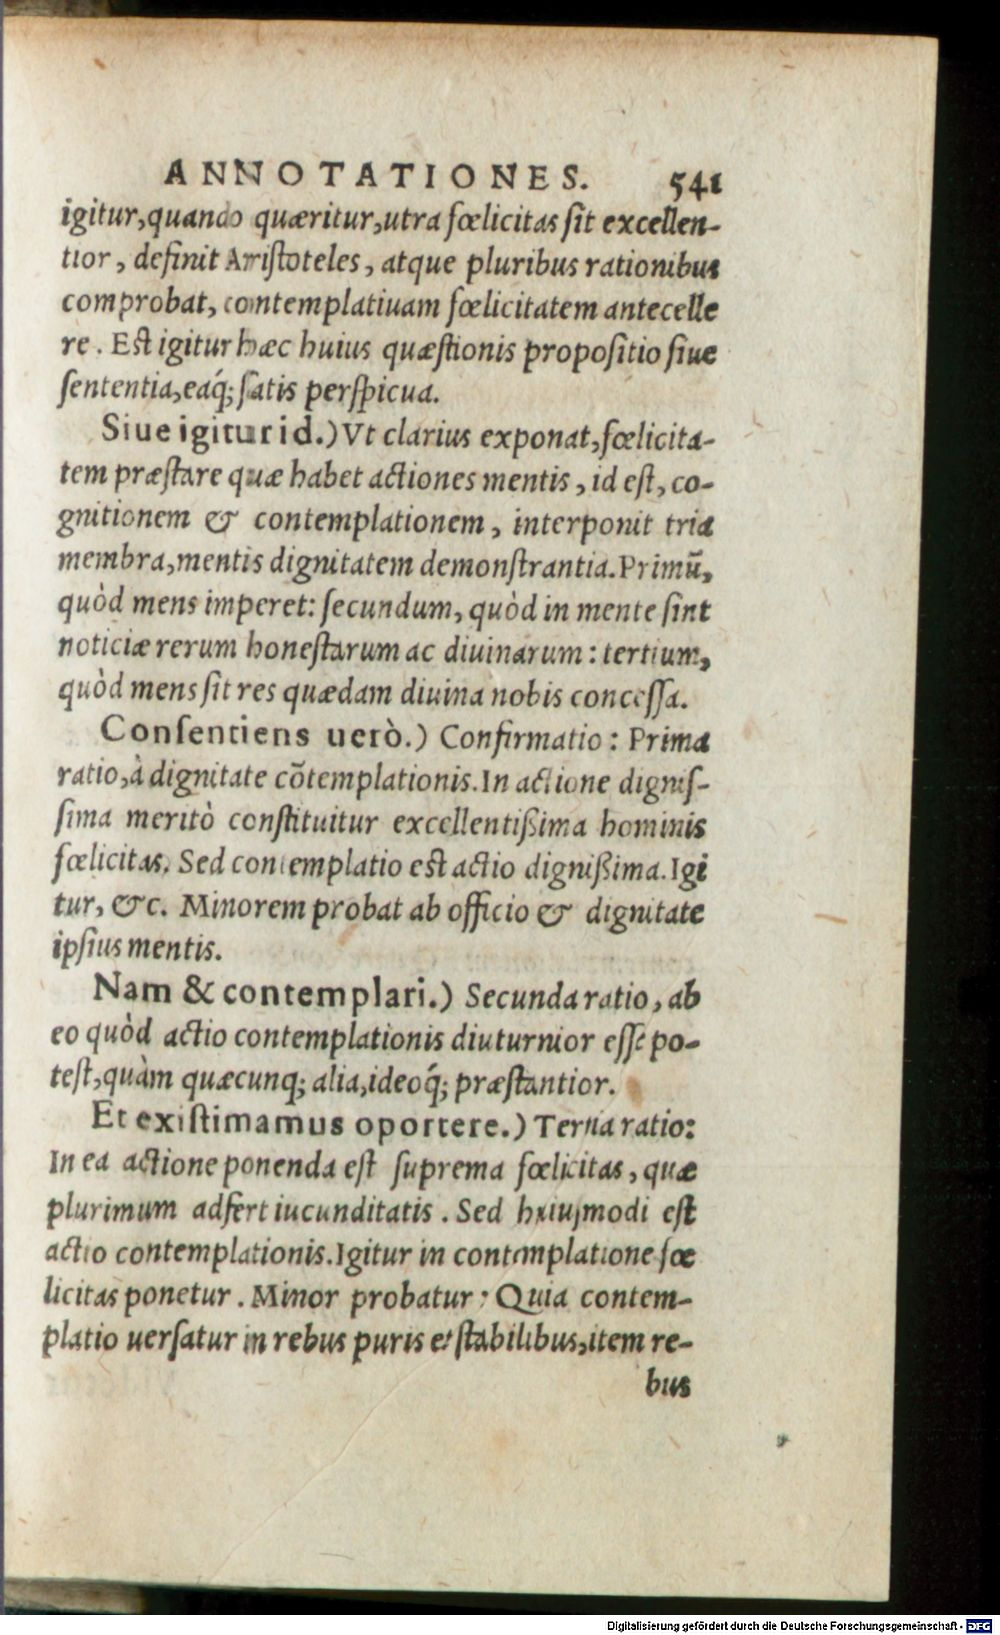 ANNOTATIONES. 541
igitur, quando quæritur, utra fœlicitas ſit excellen-
tior, definit Ariſtoteles, atque pluribus rationibus
comprobat, contemplatiuam fœlicitatem antecelle
re. Eſt igitur hæc huius quæſtionis propoſitio ſiue
ſententia, eaq́; ſatis perſpicua.
Siue igitur id.) Vt clarius exponat, fœlicita-
tem præſtare quæ habet actiones mentis, id eſt, co-
gnitionem & contemplationem, interponit tria
membra, mentis dignitatem demonſtrantia. Primũ,
quòd mens imperet: ſecundum, quòd in mente ſint
noticiæ rerum honeſtarum ac diuinarum: tertium,
quòd mens ſit res quædam diuina nobis conceſſa.
Conſentiens uerò.) Confirmatio: Prima
ratio, à dignitate cõtemplationis. In actione digniſ-
ſima meritò conſtituitur excellentißima hominis
fœlicitas. Sed contemplatio eſt actio dignißima. Igi
tur, &c. Minorem probat ab officio & dignitate
ipſius mentis.
Nam & contemplari.) Secunda ratio, ab
eo quòd actio contemplationis diuturnior eſſe po-
teſt, quàm quæcunq; alia, ideoq́; præſtantior.
Et exiſtimamus oportere.) Tertia ratio:
In ea actione ponenda eſt ſuprema fœlicitas, quæ
plurimum adfert iucunditatis. Sed huiuſmodi eſt
actio contemplationis. Igitur in contemplatione fœ
licitas ponetur. Minor probatur: Quia contem-
platio uerſatur in rebus puris et ſtabilibus, item re-
bus
Digitalisierung gefördert durch die Deutsche Forschungsgemeinschaft - DFG